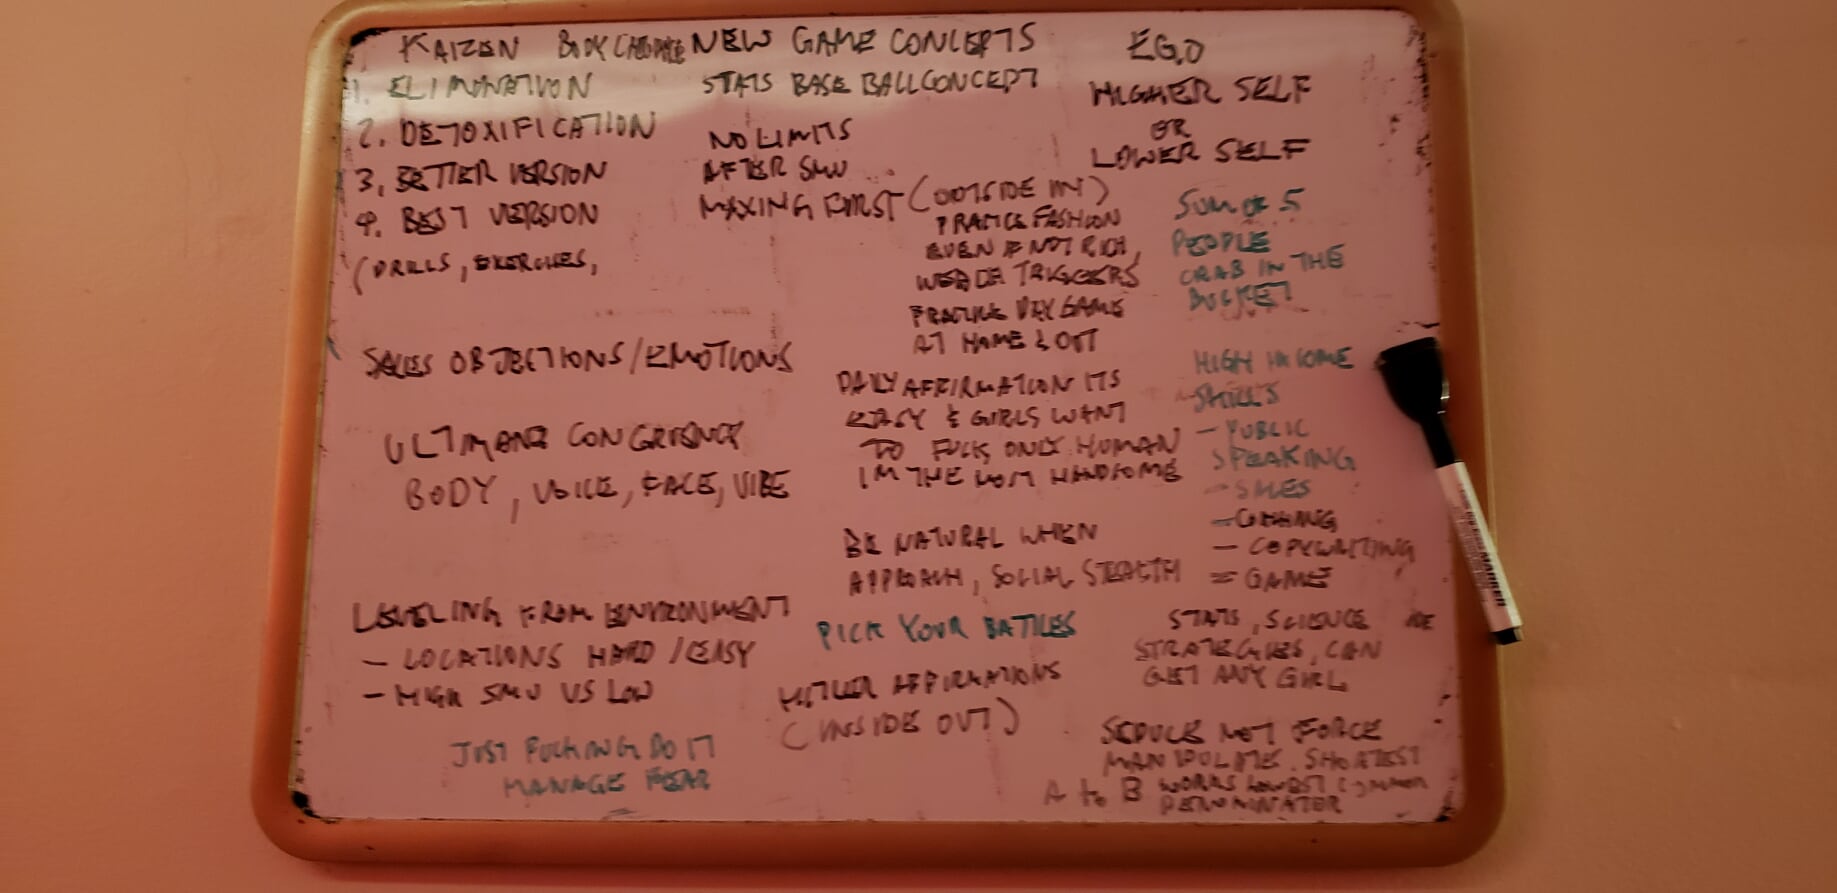 KAIZEN BODY
1. ELIMINATION
2. DETOXIFICATION
3. BETTER VERSION
4. BEST VERSION
(DRILLS, EXERCISES,
SALES OBJECTIONS/EMOTIONS
ULTIMATE CONGRUENCY
BODY, VOICE, FACE, VIBE
LEVELING FROM ENVIRONMENT
- LOCATIONS HARD/EASY
- HIGH SMV VS LOW
JUST FUCKING DO IT
MANAGE FEAR
NEW GAME CONCEPTS
STATS BASE BALL CONCEPT
NO LIMITS
AFTER SMV
MAXING FIRST (OUTSIDE IN)
PRATICE FASHION
EVEN IF NOT RICH,
TRIGGERS
PRACTICE DAY GAME
AT HOME & OUT
DAILY AFFIRMATION ITS
EASY & GIRLS WANT
TO FUCK, ONLY HUMAN
IM THE MOST HANDSOME
BE NATURAL WHEN
APPROACH, SOCIAL STEALTH
PICK YOUR BATTLES
HITLER AFFIRMATIONS
(INSIDE OUT)
EGO
HIGHER SELF
OR
LOWER SELF
SUM OF 5
PEOPLE
CRAB IN THE
BUCKET
HIGH INCOME
SKILLS
- PUBLIC
SPEAKING
- SALES
- COPYWRITING
= GAME
STATS, SCIENCE
STRATEGIES, CAN
GET ANY GIRL
SEDUCE NOT FORCE
MANIPULATE. SHORTEST
A to B WORKS LOWEST COMMON
DENOMINATOR
MARKER